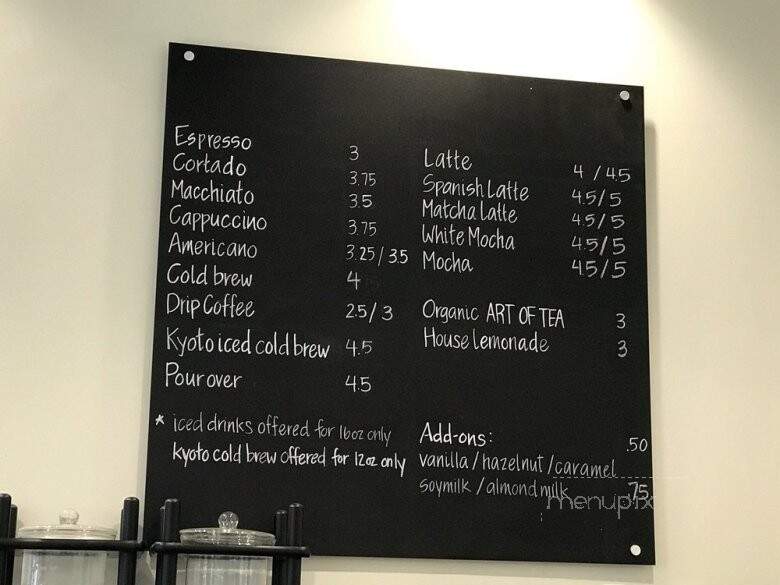 Espresso 3
Cortado 3.75
Macchiato 3.5
Cappuccino 3.75
Americano 3.25/3.5
Cold brew 4
Drip Coffee 2.5/3
Kyoto iced cold brew 4.5
Pour over 4.5
* iced drinks offered for 16oz only
kyoto cold brew offered for 12oz only
Latte 4/4.5
Spanish Latte 4.5/5
Matcha Latte 4.5/5
White Mocha 4.5/5
Mocha 4.5/5
Organic ART OF TEA 3
House lemonade 3
Add-ons:
vanilla/hazelnut/caramel .50
soymilk/almond milk .75
menupix